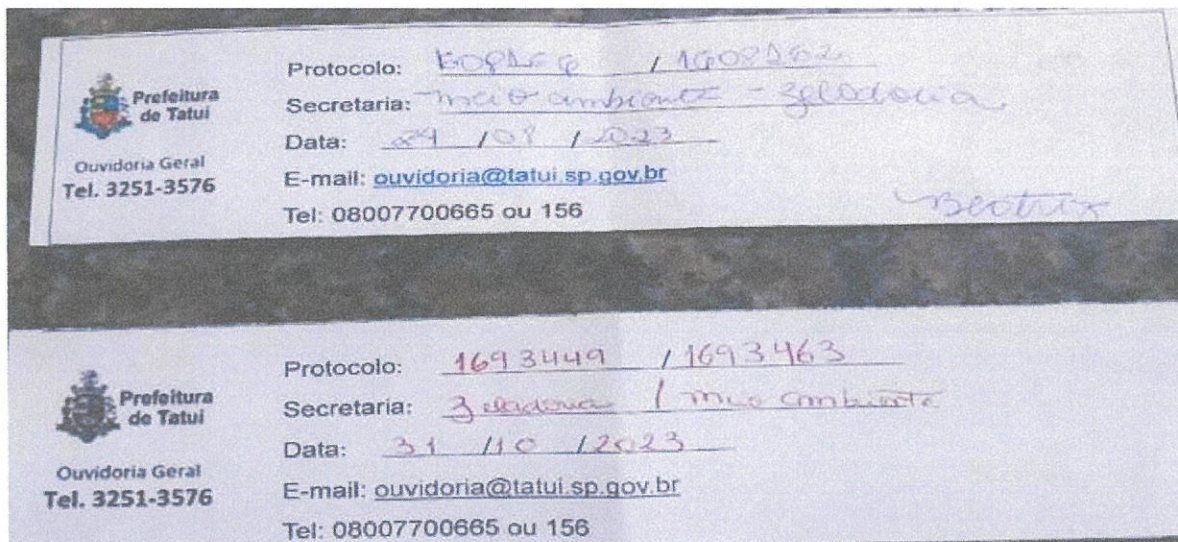 Prefeitura
de Tatuí
Ouvidoria Geral
Tel. 3251-3576
Protocolo: / 1608162
Secretaria: meio ambiente - zeladoria
Data: 24 / 08 / 2023
E-mail: ouvidoria@tatui.sp.gov.br
Tel: 08007700665 ou 156
Beatriz
Prefeitura
de Tatuí
Ouvidoria Geral
Tel. 3251-3576
Protocolo: 1693449 / 1693463
Secretaria: Zeladoria / meio ambiente
Data: 31 / 10 / 2023
E-mail: ouvidoria@tatui.sp.gov.br
Tel: 08007700665 ou 156